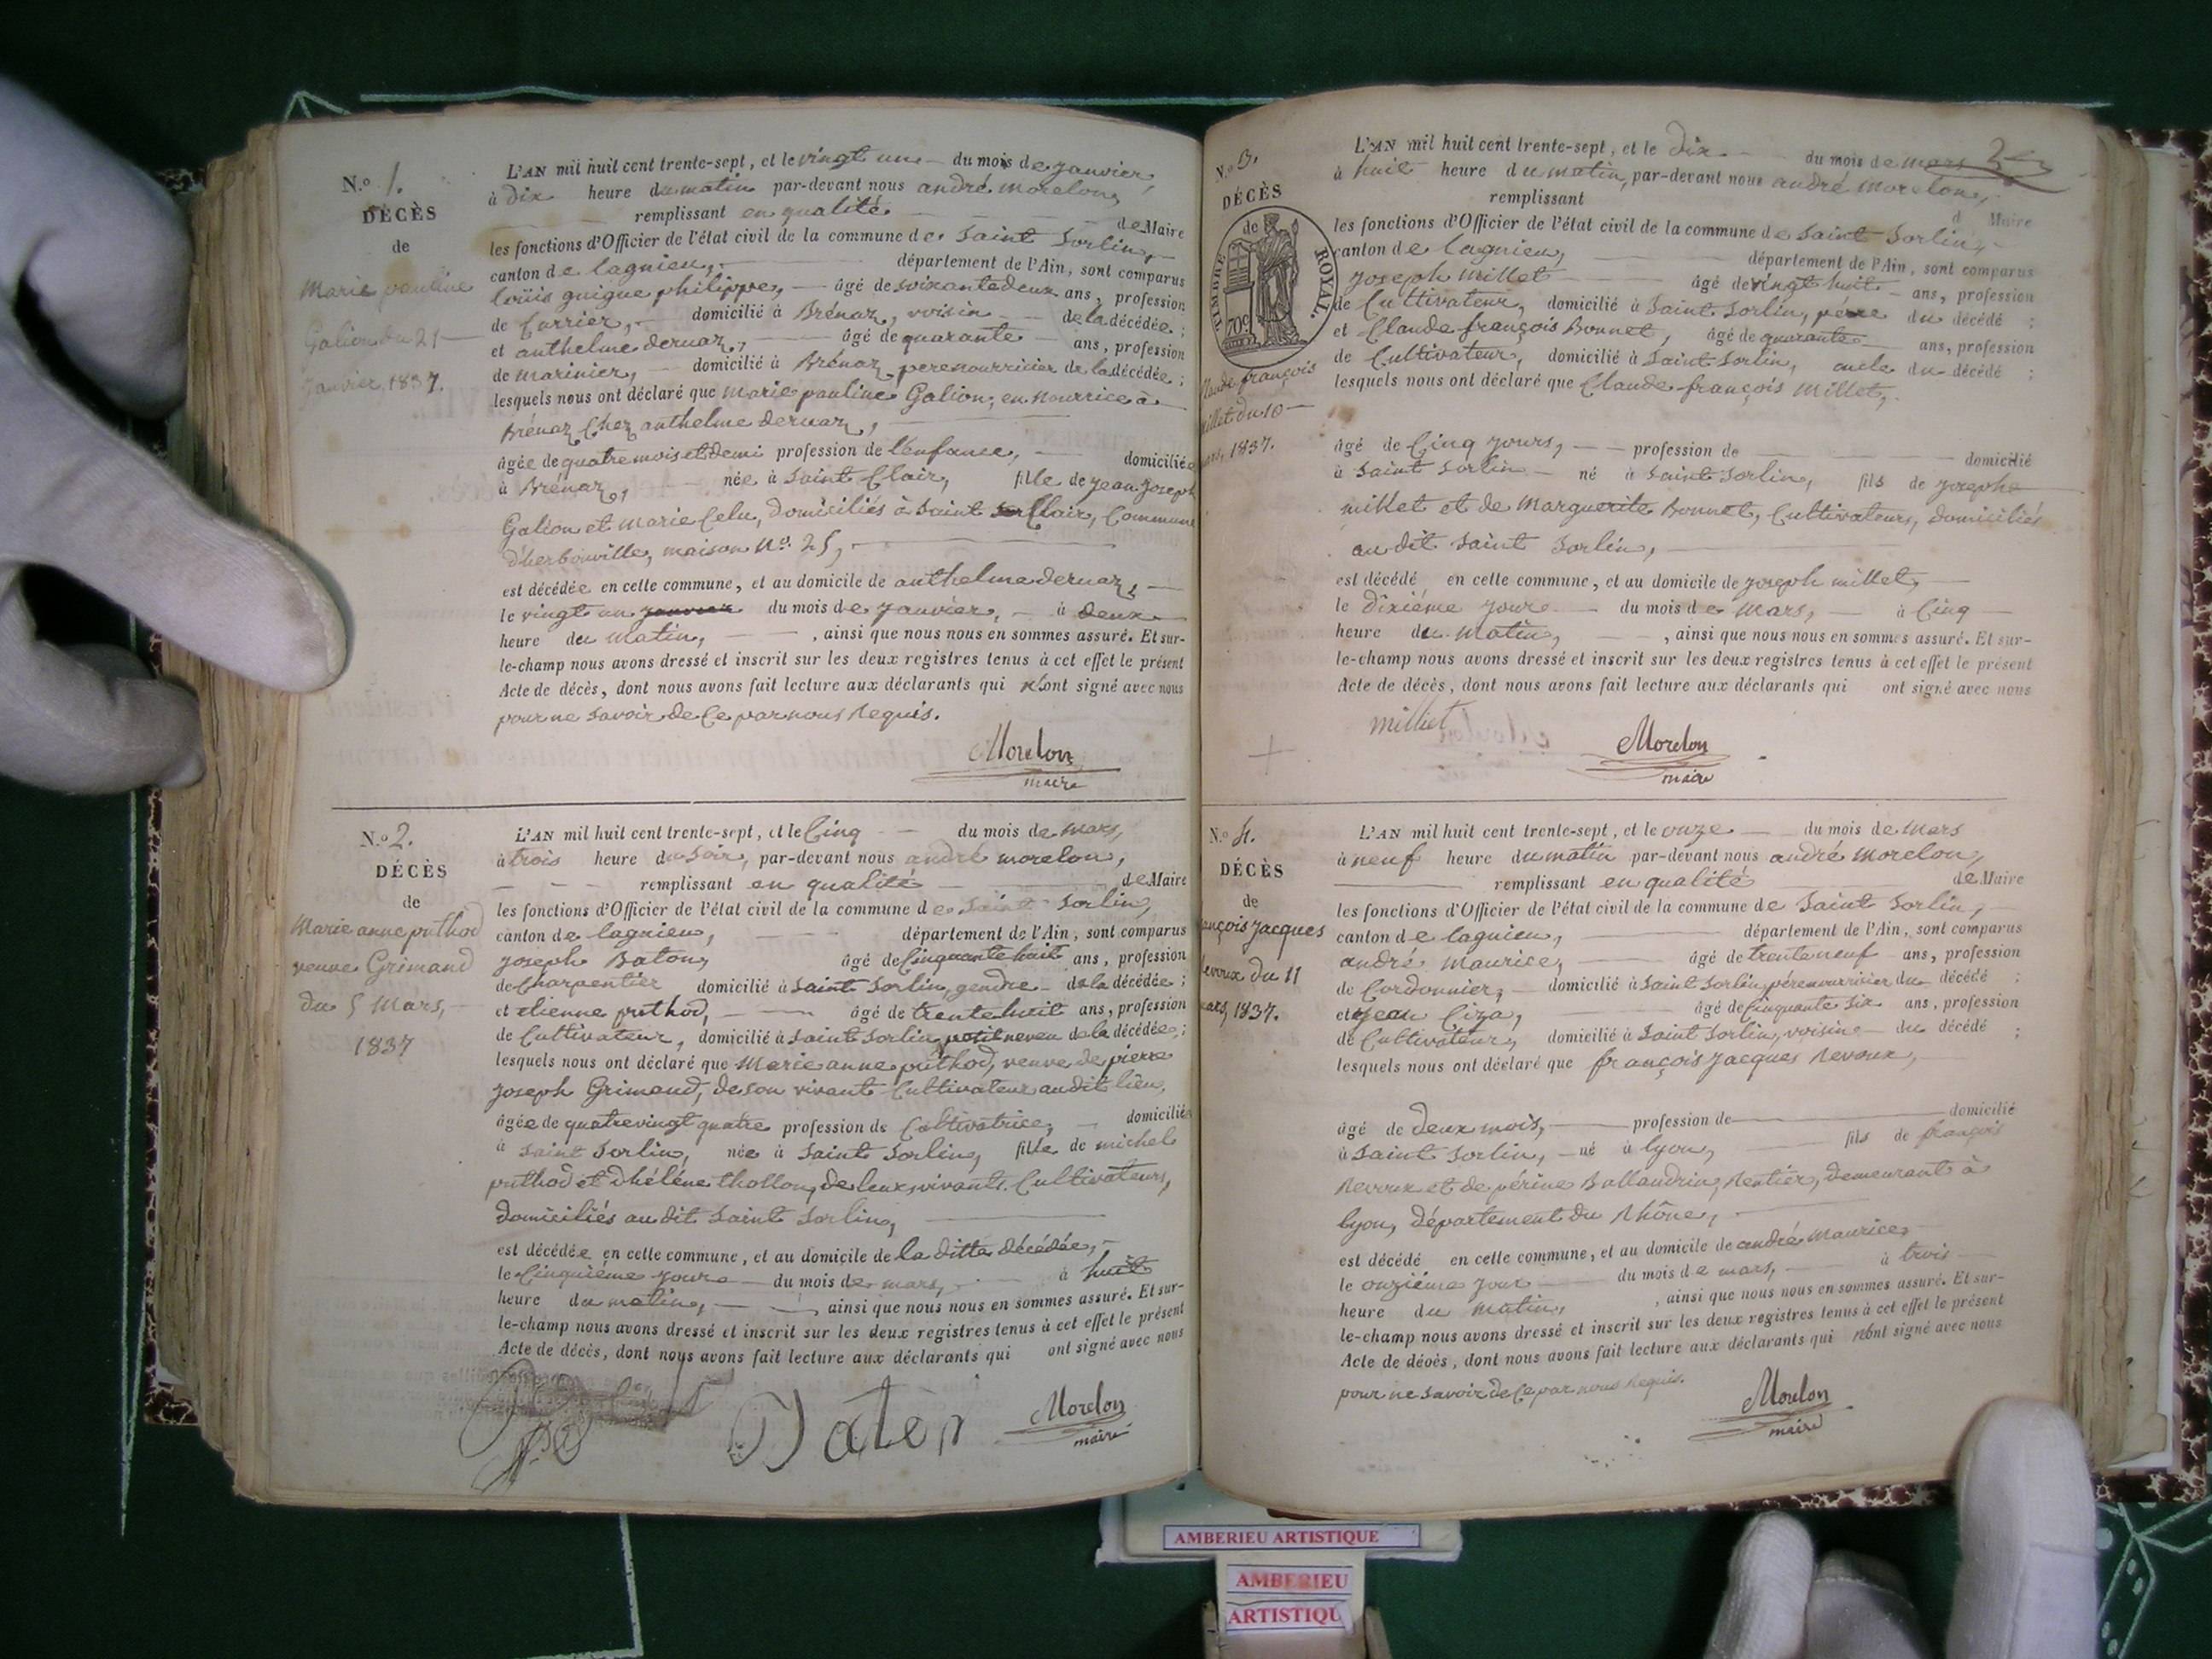 N.º 1.
DÉCÈS
de
Marie pauline
Galion du 21
janvier, 1837.
L'AN mil huit cent trente-sept, et le vingt un du mois de janvier,
à dix heure du matin par-devant nous andré morelon,
remplissant en qualité de Maire
les fonctions d'Officier de l'état civil de la commune de Saint Sorlin,
canton de lagnieu, département de l'Ain, sont comparus
loüis guigue philippe, âgé de soixante deux ans, profession
de Carrier, domicilié à Brénaz, voisin de la décédée ;
et anthelme dernaz, âgé de quarante ans, profession
de marinier, domicilié à Brénaz pere nourricier de la décédée ;
lesquels nous ont déclaré que marie pauline Galion, en nourrice à
Brénaz chez anthelme dernaz,
âgée de quatre mois et demi profession de l'enfance, domiciliée
à Brénaz, née à Saint Clair, fille de jean joseph
Galion et marie Celu, domiciliés à Saint Clair, Commune
d'herbouville, maison N.º 25,
est décédée en cette commune, et au domicile de anthelme dernaz,
le vingt un janvier du mois de janvier, à deux
heure du matin, , ainsi que nous nous en sommes assuré. Et sur-
le-champ nous avons dressé et inscrit sur les deux registres tenus à cet effet le présent
Acte de décès, dont nous avons fait lecture aux déclarants qui n'ont signé avec nous
pour ne savoir de Ce par nous Requis.
Morelon
maire
N.º 2.
DÉCÈS
de
Marie anne puthod
veuve Grimand
du 5 Mars,
1837
L'AN mil huit cent trente-sept, et le Cinq du mois de mars,
à trois heure du soir, par-devant nous andré morelon,
remplissant en qualité de Maire
les fonctions d'Officier de l'état civil de la commune de Saint Sorlin,
canton de lagnieu, département de l'Ain, sont comparus
joseph Baton, âgé de Cinquante huit ans, profession
de Charpentier domicilié à Saint Sorlin, gendre de la décédée ;
et etienne puthod, âgé de trente huit ans, profession
de Cultivateur, domicilié à Saint Sorlin, petit neveu de la décédée ;
lesquels nous ont déclaré que Marie anne puthod, veuve de pierre
joseph Grimand, de son vivant Cultivateur au dit lieu,
âgée de quatre vingt quatre profession de Cultivatrice, domiciliée
à Saint Sorlin, née à Saint Sorlin, fille de michel
puthod et d'héléne thollon, de leurs vivants Cultivateurs,
domiciliés au dit Saint Sorlin,
est décédée en cette commune, et au domicile de la ditte décédée,
le Cinquiéme jour du mois de mars, à huit
heure du matin, , ainsi que nous nous en sommes assuré. Et sur-
le-champ nous avons dressé et inscrit sur les deux registres tenus à cet effet le présent
Acte de décès, dont nous avons fait lecture aux déclarants qui ont signé avec nous
Baton
Morelon
maire
2
N.º 3.
DÉCÈS
de
TIMBRE ROYAL.
70c
Claude françois
millet du 10
mars, 1837.
L'AN mil huit cent trente-sept, et le dix du mois de mars
à huit heure du matin, par-devant nous andré morelon,
remplissant d Maire
les fonctions d'Officier de l'état civil de la commune de Saint Sorlin,
canton de lagnieu, département de l'Ain, sont comparus
joseph millet âgé de vingt huit ans, profession
de Cultivateur, domicilié à Saint Sorlin, pére du décédé ;
et Claude françois Bonnet, âgé de quarante ans, profession
de Cultivateur, domicilié à Saint Sorlin, oncle du décédé ;
lesquels nous ont déclaré que Claude françois millet,
âgé de Cinq jours, profession de domicilié
à Saint Sorlin né à Saint Sorlin, fils de joseph
millet et de Marguerite Bonnet, Cultivateurs, domiciliés
au dit Saint Sorlin,
est décédé en cette commune, et au domicile de joseph millet,
le dixiéme jour du mois de Mars, à Cinq
heure du matin, , ainsi que nous nous en sommes assuré. Et sur-
le-champ nous avons dressé et inscrit sur les deux registres tenus à cet effet le présent
Acte de décès, dont nous avons fait lecture aux déclarants qui ont signé avec nous
milliet
Morelon
maire
N.º 4.
DÉCÈS
de
ançois jacques
revoux du 11
mars, 1837.
L'AN mil huit cent trente-sept, et le onze du mois de Mars
à neuf heure du matin par-devant nous andré Morelon,
remplissant en qualité de Maire
les fonctions d'Officier de l'état civil de la commune de Saint Sorlin,
canton de lagnieu, département de l'Ain, sont comparus
andré Maurice, âgé de trente neuf ans, profession
de Cordonnier, domicilié à Saint Sorlin, pére nourricier du décédé ;
et jean Ciza, âgé de Cinquante six ans, profession
de Cultivateur, domicilié à Saint Sorlin, voisin du décédé ;
lesquels nous ont déclaré que françois jacques Revoux,
âgé de deux mois, profession de domicilié
à Saint Sorlin, né à lyon, fils de françois
Revoux et de périne Ballandrin, Rentier, demeurant à
lyon, département du Rhône,
est décédé en cette commune, et au domicile de andré Maurice
le onziéme jour du mois de mars, à trois
heure du matin, , ainsi que nous nous en sommes assuré. Et sur-
le-champ nous avons dressé et inscrit sur les deux registres tenus à cet effet le présent
Acte de décès, dont nous avons fait lecture aux déclarants qui n'ont signé avec nous
pour ne savoir de Ce par nous Requis.
Morelon
maire
AMBERIEU ARTISTIQUE
AMBERIEU
ARTISTIQU